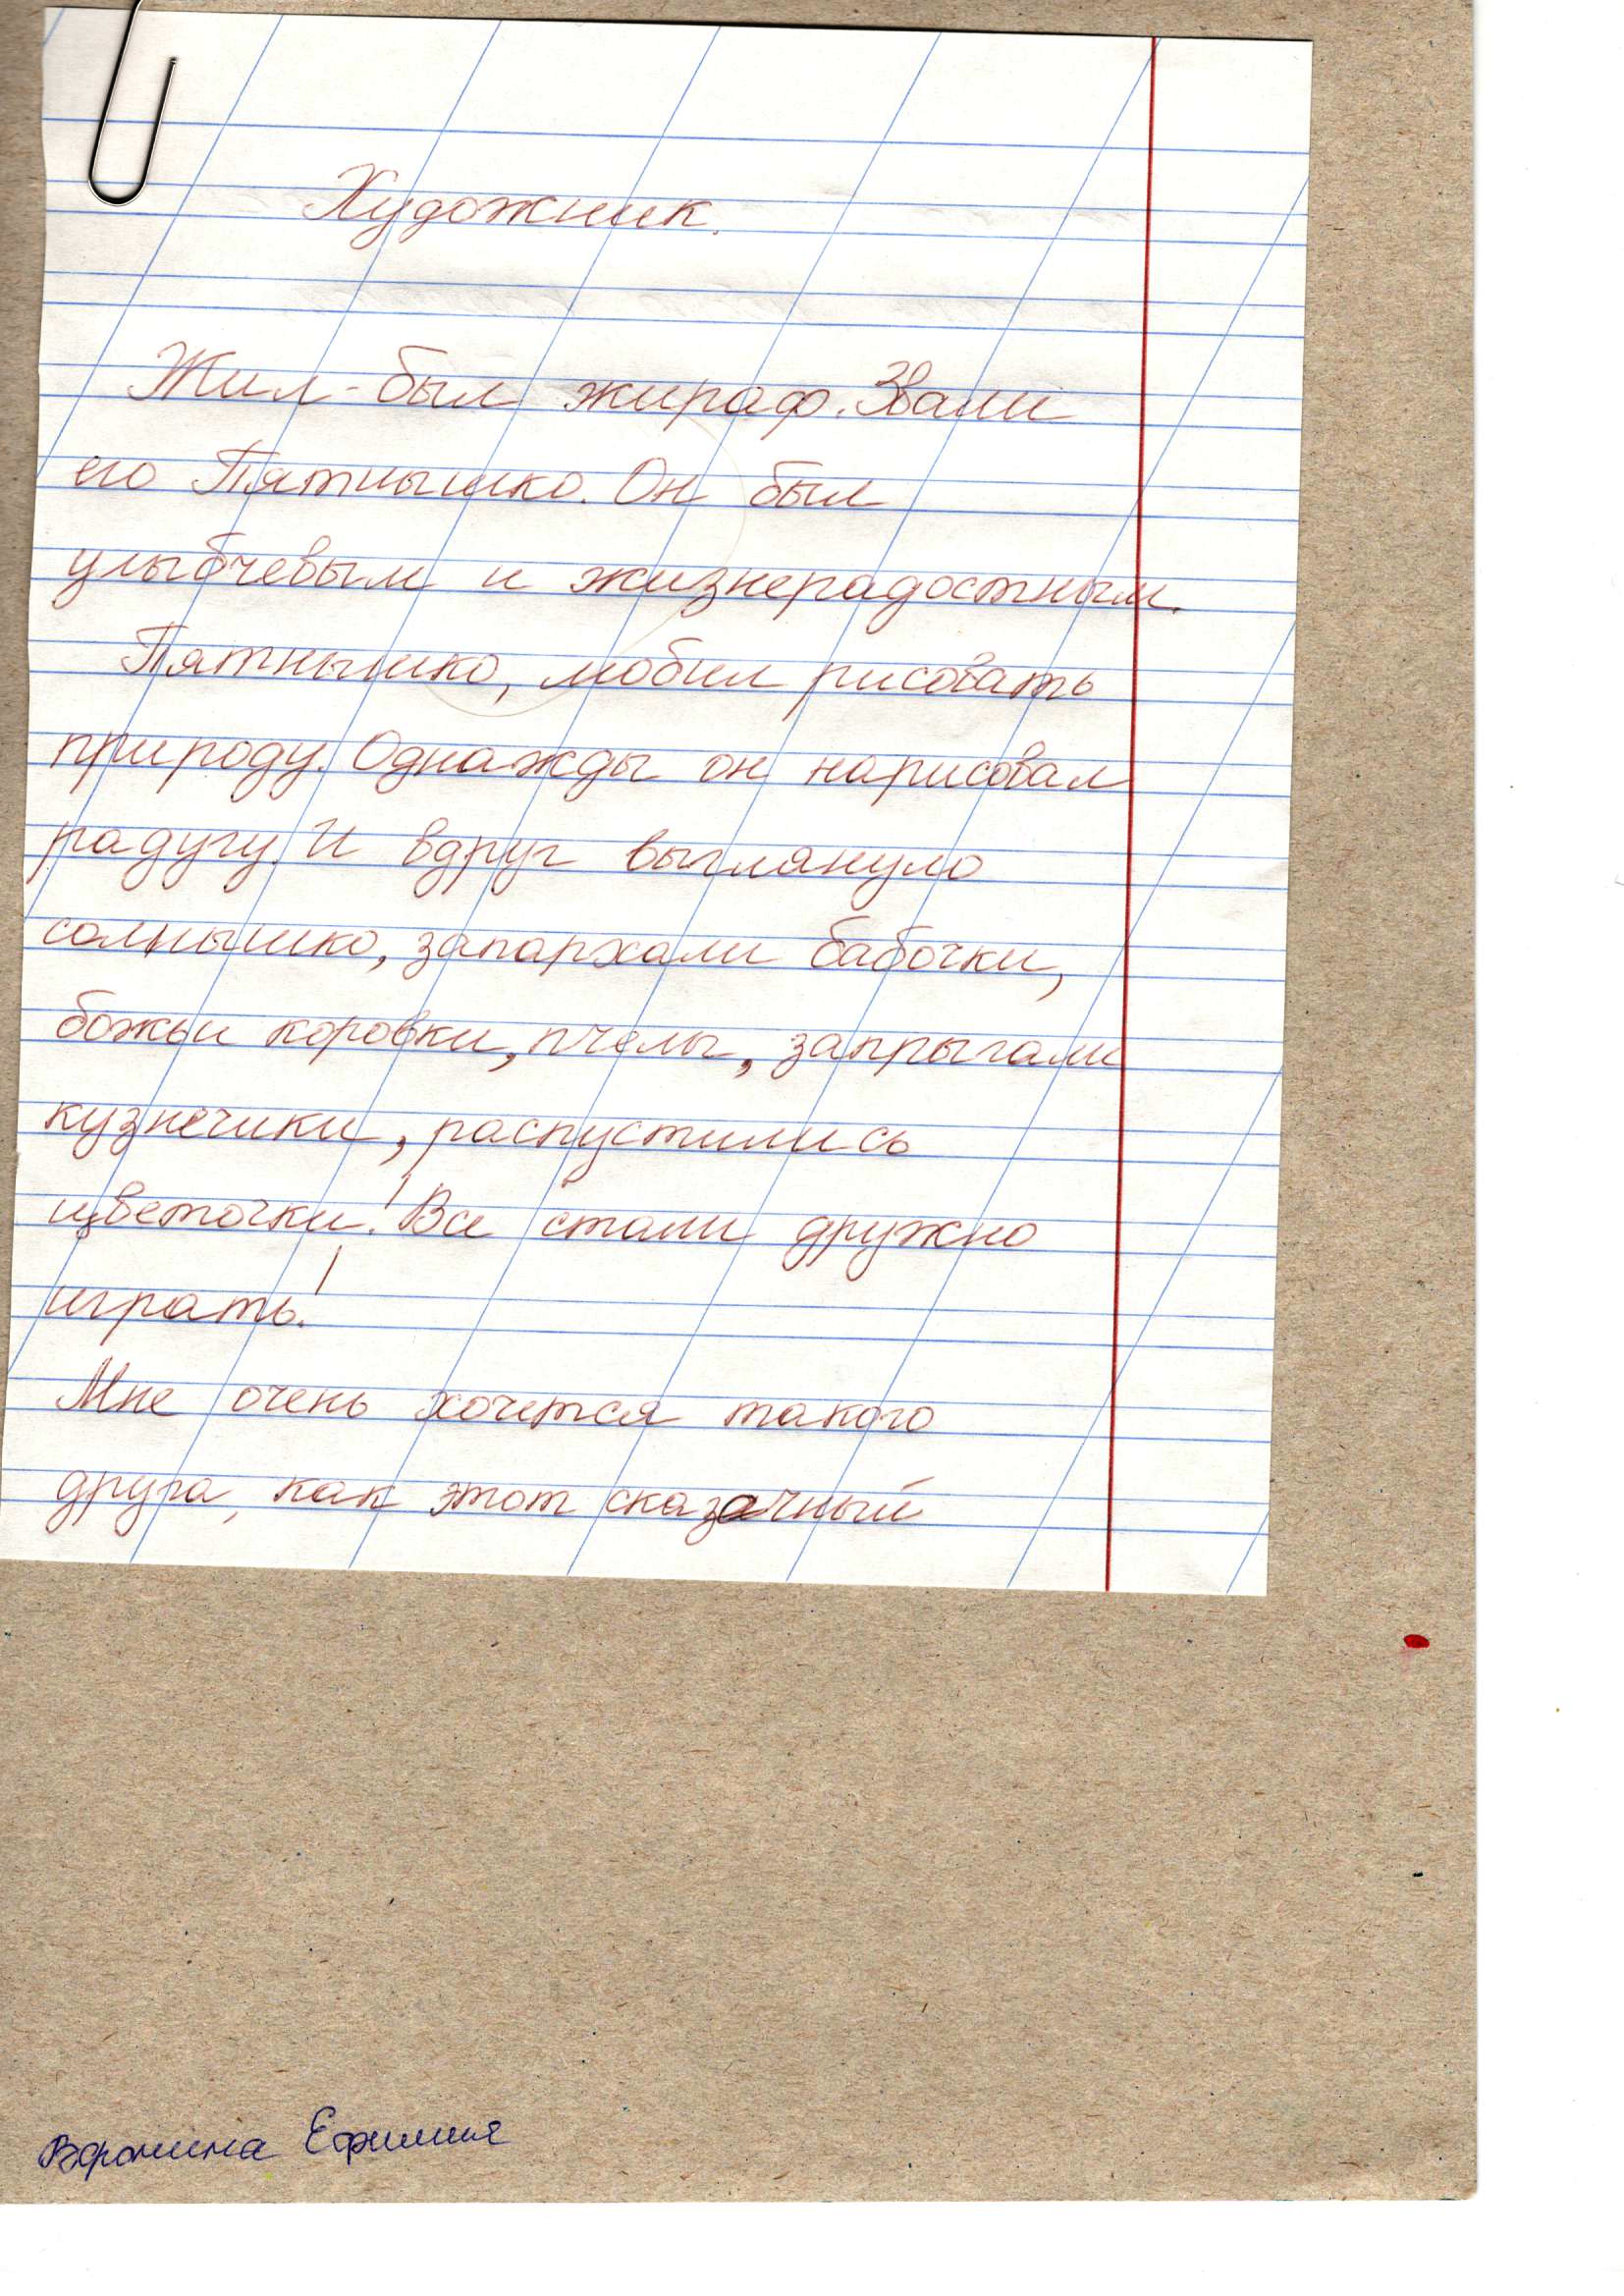 Художник.
Жил-был жираф. Звали
его Пятнышко. Он был
улыбчевым и жизнерадостным.
Пятнышко, любил рисовать
природу. Однажды он нарисовал
радугу. И вдруг выглянуло
солнышко, запархали бабочки,
божьи коровки, пчелы, запрыгали
кузнечики, распустились
цветочки! Все стали дружно
играть!
Мне очень хочется такого
друга, как этот сказачный
Воронина Ефимия